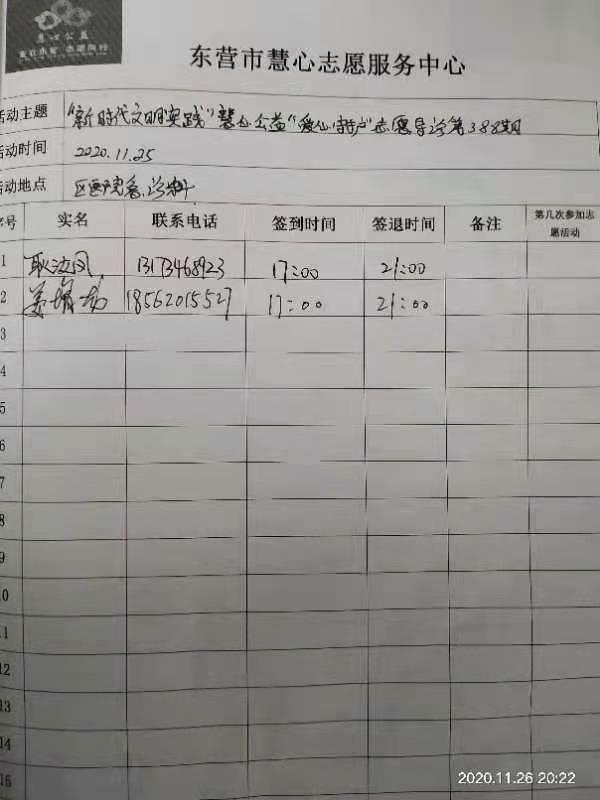 慧心公益
东营市慧心志愿服务中心
活动主题 "新时代文明实践"慧心公益"爱心守护"志愿导诊第388期
活动时间 2020.11.25
活动地点 区医院急诊科
序号 实名 联系电话 签到时间 签退时间 备注 第几次参加志愿活动
1 耿 13173468923 17:00 21:00
2 姜 18562015527 17:00 21:00
3
4
5
6
7
8
9
10
11
12
13
14
15
2020.11.26 20:22